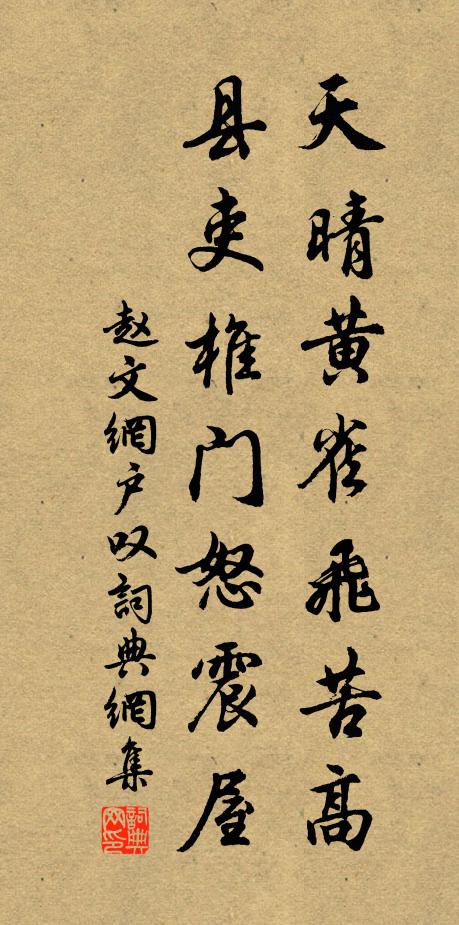 天晴黄雀飛苦高
县吏椎门怒震屋
赵文網户叹詞典網集
詞典网印